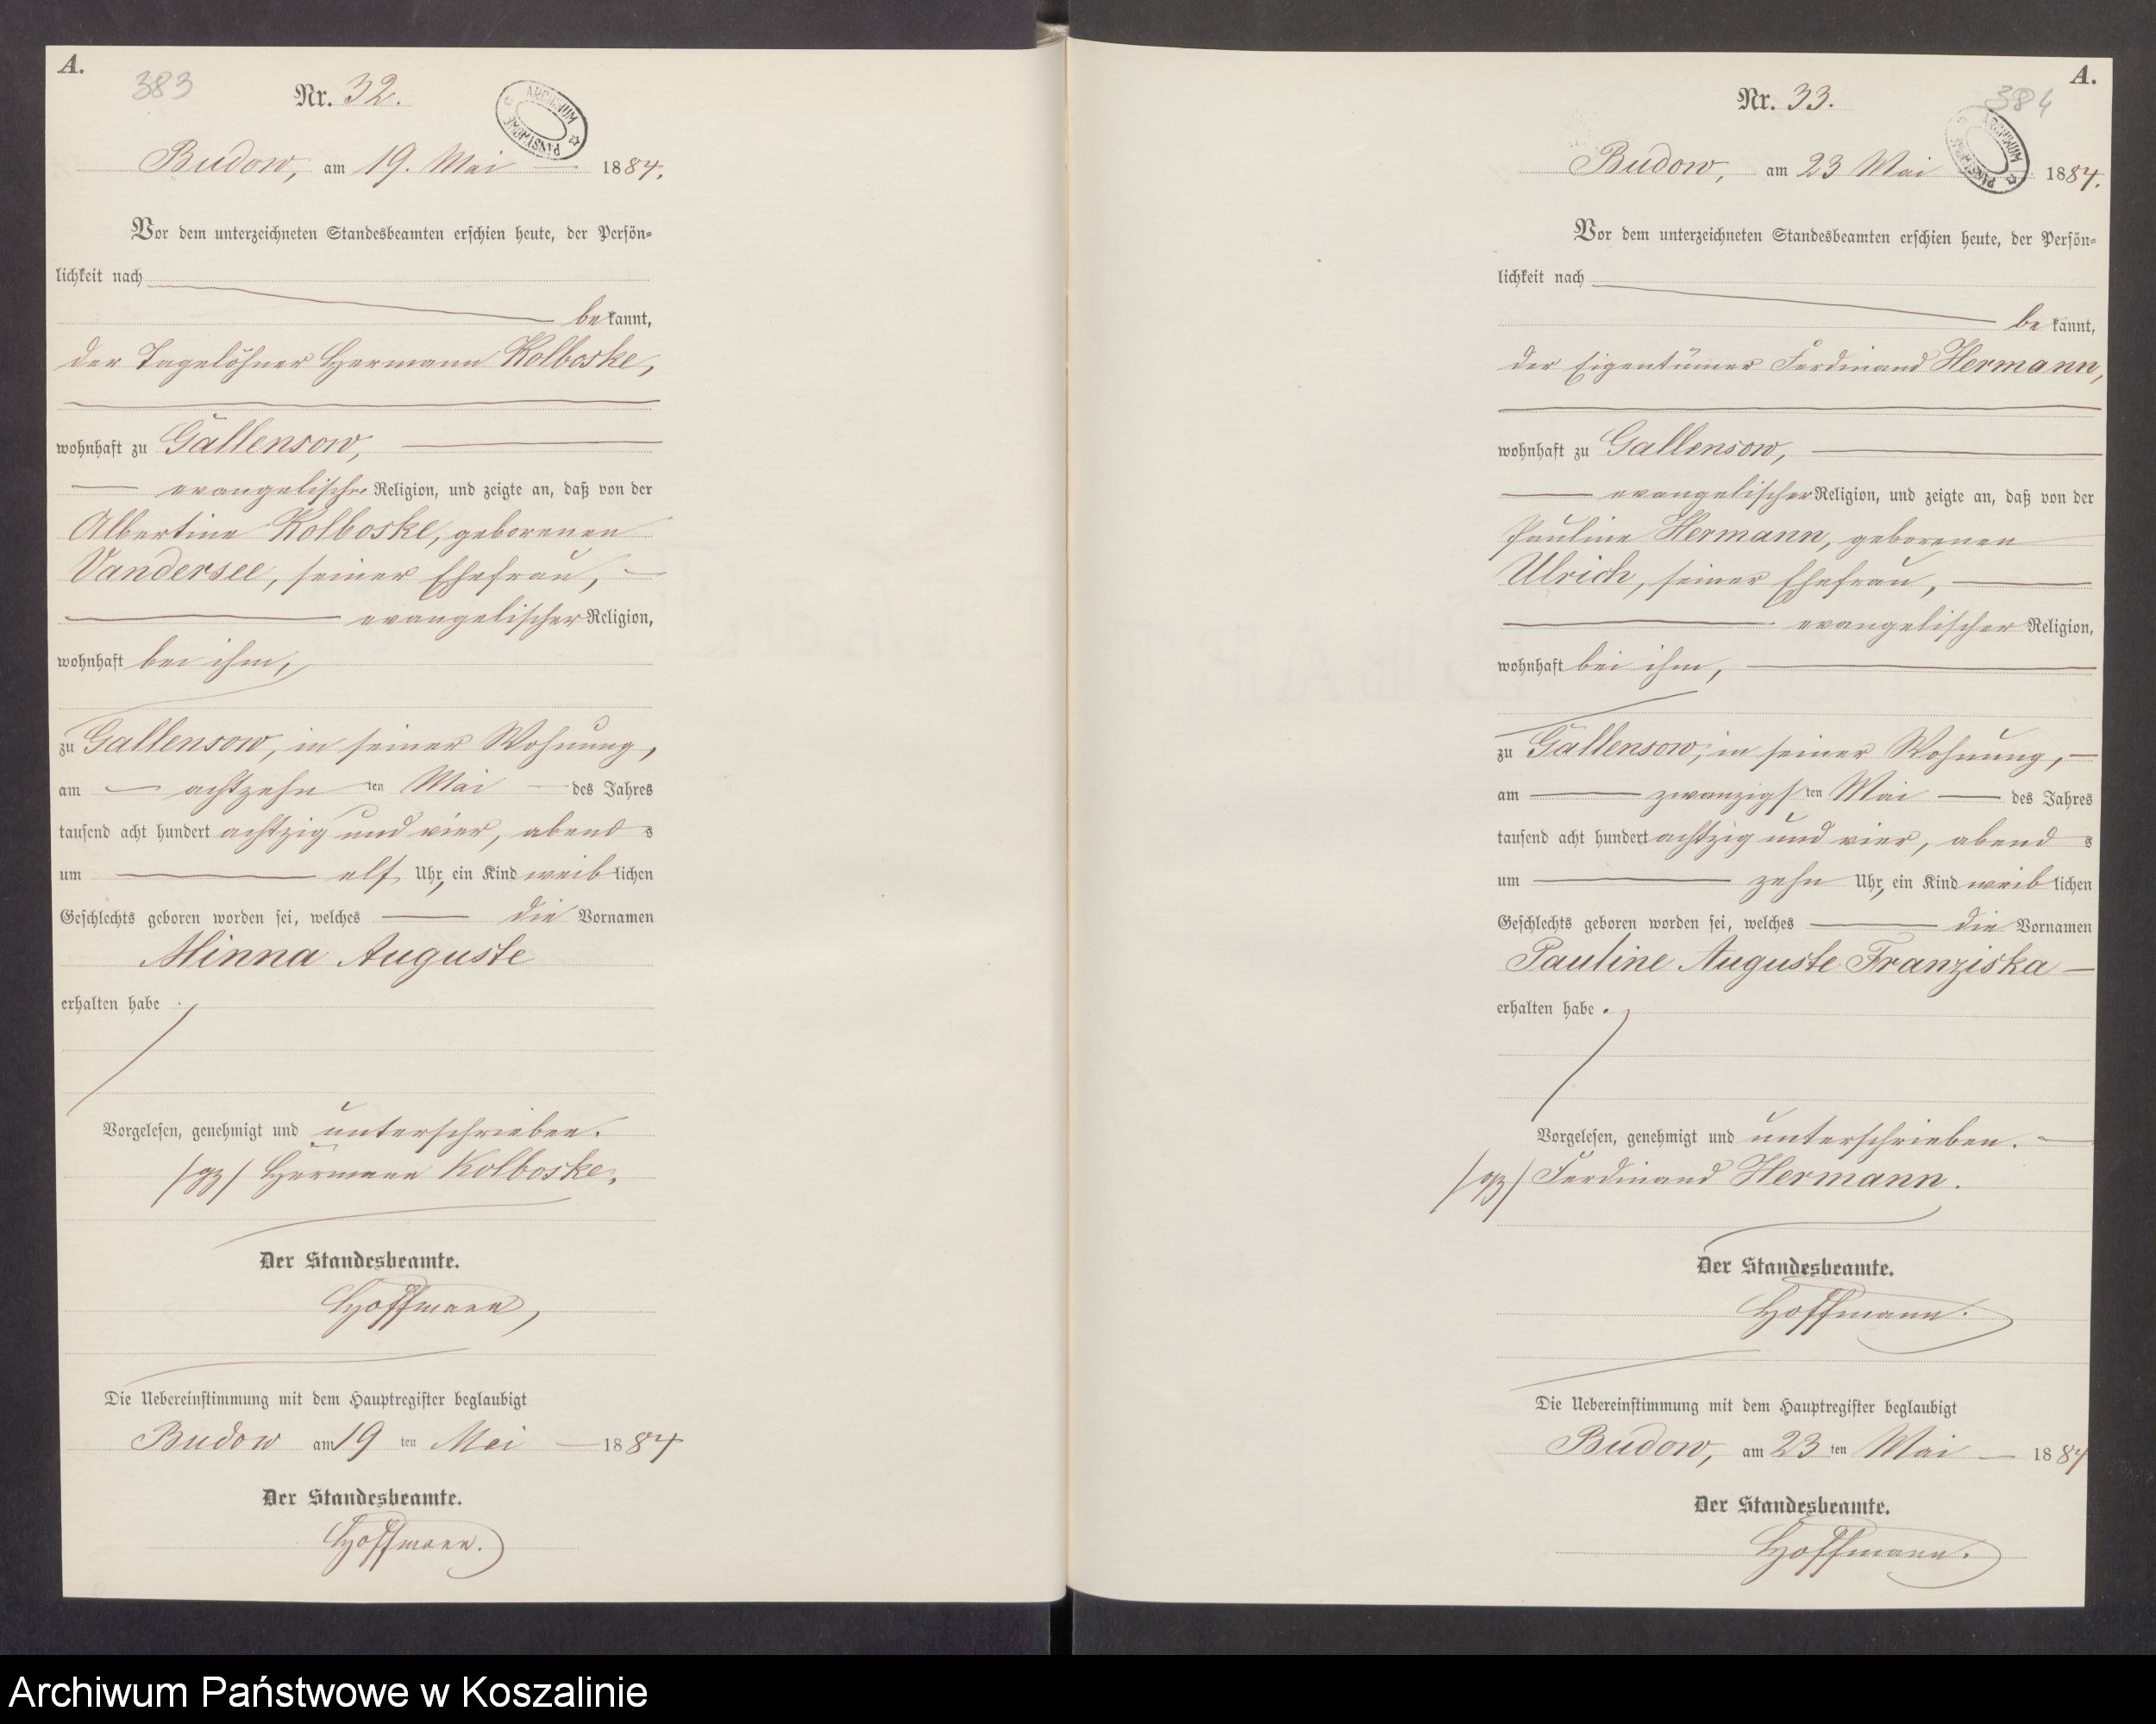 A.
383
Nr. 32.
ARCHIWUM PAŃSTWOWE
Budow, am 19. Mai 1884.
Vor dem unterzeichneten Standesbeamten erschien heute, der Persön=
lichkeit nach
bekannt,
der Tagelöhner Hermann Kolboske,
wohnhaft zu Gallensow,
evangelischer Religion, und zeigte an, daß von der
Albertine Kolboske, geborenen
Vandersee, seiner Ehefrau,
evangelischer Religion,
wohnhaft bei ihm,
zu Gallensow, in seiner Wohnung,
am achtzehn ten Mai des Jahres
tausend acht hundert achtzig und vier, abends
um elf Uhr, ein Kind weiblichen
Geschlechts geboren worden sei, welches die Vornamen
Minna Auguste
erhalten habe.
Vorgelesen, genehmigt und unterschrieben.
/gz/ Hermann Kolboske.
Der Standesbeamte.
Hoffmann,
Die Uebereinstimmung mit dem Hauptregister beglaubigt
Budow am 19 ten Mai 1884
Der Standesbeamte.
Hoffmann.
A.
384
Nr. 33.
ARCHIWUM PAŃSTWOWE
Budow, am 23 Mai 1884.
Vor dem unterzeichneten Standesbeamten erschien heute, der Persön=
lichkeit nach
bekannt,
der Eigentümer Ferdinand Hermann,
wohnhaft zu Gallensow,
evangelischer Religion, und zeigte an, daß von der
Pauline Hermann, geborenen
Ulrich, seiner Ehefrau,
evangelischer Religion,
wohnhaft bei ihm,
zu Gallensow, in seiner Wohnung,
am zwanzigsten Mai des Jahres
tausend acht hundert achtzig und vier, abends
um zehn Uhr, ein Kind weiblichen
Geschlechts geboren worden sei, welches die Vornamen
Pauline Auguste Franziska
erhalten habe.
Vorgelesen, genehmigt und unterschrieben.
/gz/ Ferdinand Hermann.
Der Standesbeamte.
Hoffmann.
Die Uebereinstimmung mit dem Hauptregister beglaubigt
Budow, am 23 ten Mai 1884
Der Standesbeamte.
Hoffmann.
Archiwum Państwowe w Koszalinie